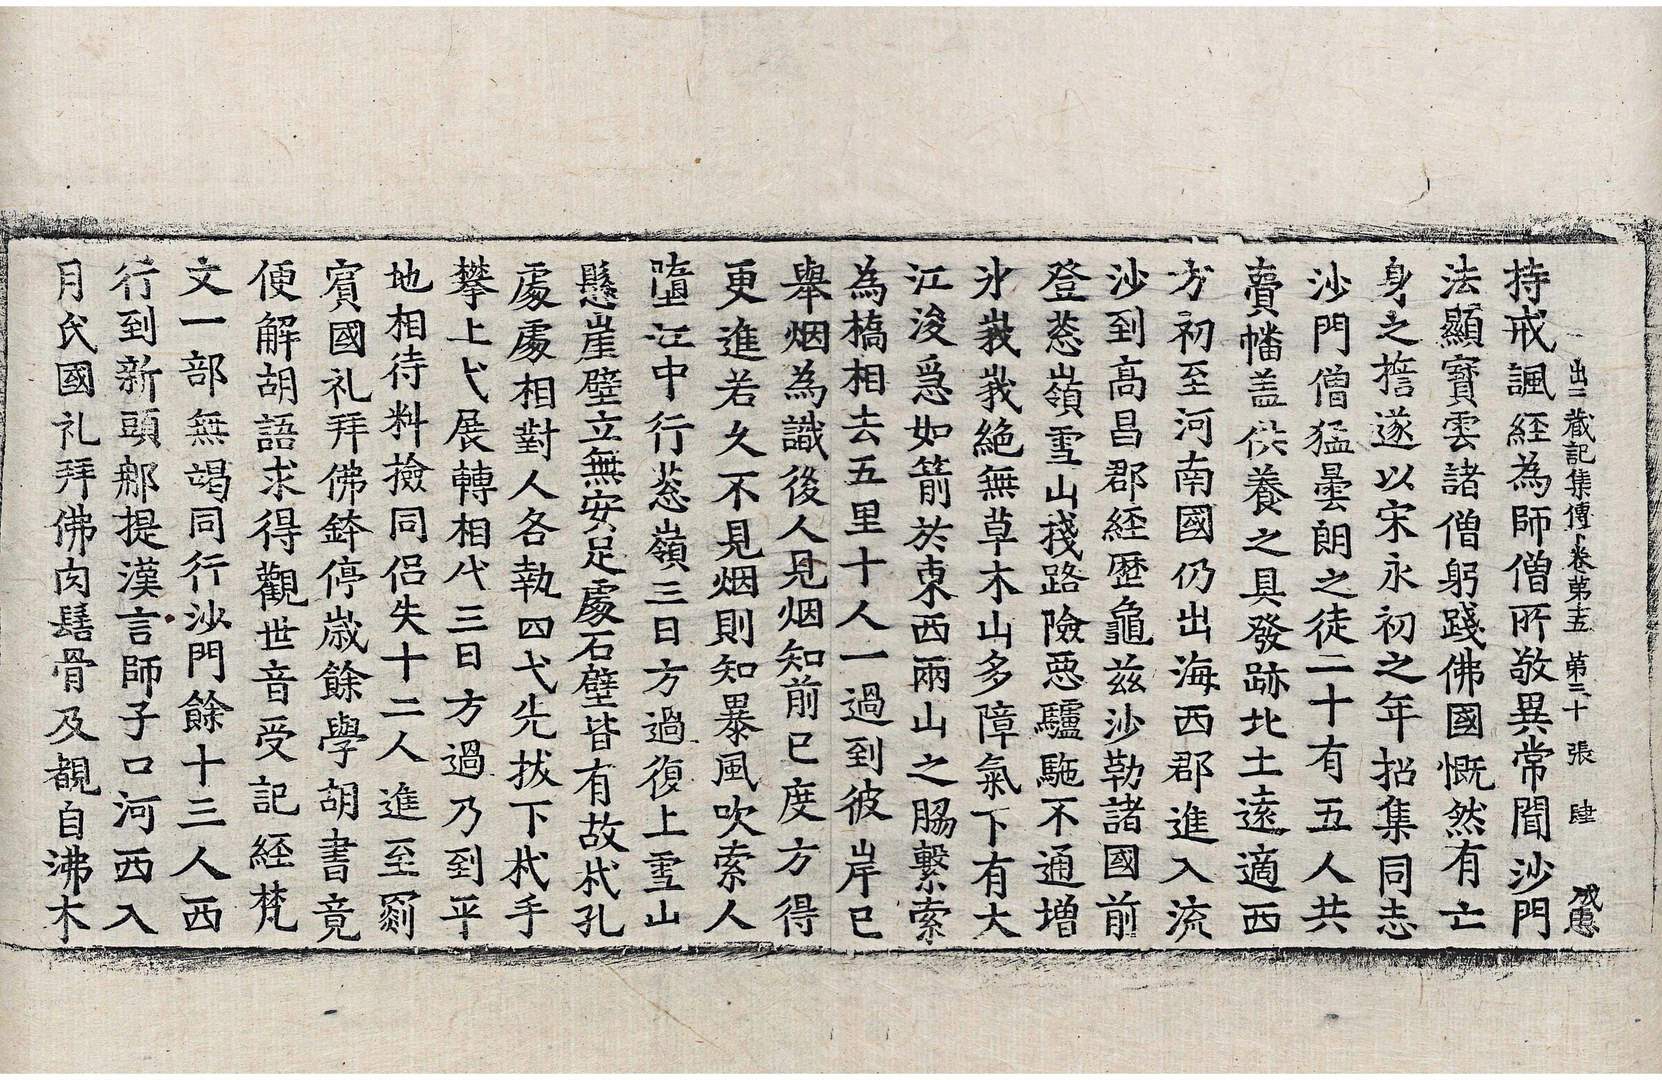 出三藏記集傳卷第十五 第三十張 肆
持戒諷経為師僧所敬異常聞沙門
法顯寳雲諸僧躬踐佛國慨然有亡
身之誓遂以宋永初之年招集同志
沙門僧猛曇朗之徒二十有五人共
賷幡盖供養之具發跡北土遠適西
方初至河南國仍出海西郡進入流
沙到高昌郡経歷龜茲沙勒諸國前
登葱嶺雪山棧路險惡驢駞不通增
氷峩峩絶無草木山多障氣下有大
江浚急如箭於東西兩山之脇繫索
為橋相去五里十人一過到彼岸已
舉烟為識後人見烟知前已度方得
更進若久不見烟則知暴風吹索人
墮江中行葱嶺三日方過復上雪山
懸崖壁立無安足處石壁皆有故杙孔
處處相對人各執四弋先拔下杙手
攀上弋展轉相代三日方過乃到平
地相待料撿同侶失十二人進至罽
賓國礼拜佛鉢停歲餘學胡書竟
便解胡語求得觀世音受記経梵
文一部無竭同行沙門餘十三人西
行到新頭郍提漢言師子口河西入
月氏國礼拜佛肉髻骨及覩自沸木